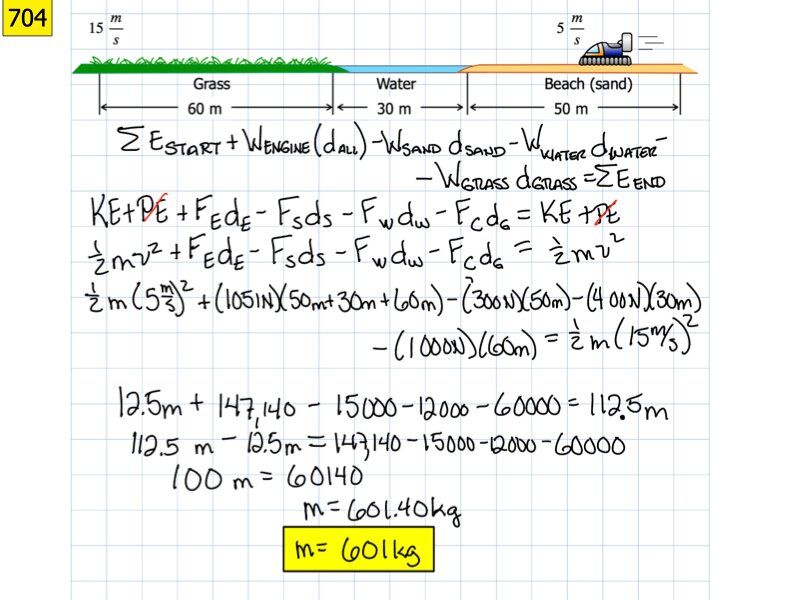 704
15 m/s
5 m/s
Grass
Water
Beach (sand)
60 m
30 m
50 m
ΣE_START + W_ENGINE (d_ALL) - W_SAND d_SAND - W_WATER d_WATER -
- W_GRASS d_GRASS = ΣE_END
KE + PE + F_E d_E - F_S d_S - F_W d_W - F_C d_G = KE + PE
½mv² + F_E d_E - F_S d_S - F_W d_W - F_C d_G = ½mv²
½m(5 m/s)² + (1051N)(50m+30m+60m) - (300N)(50m) - (400N)(30m)
- (1000N)(60m) = ½m(15 m/s)²
12.5m + 147,140 - 15000 - 12000 - 60000 = 112.5m
112.5 m - 12.5m = 147,140 - 15000 - 12000 - 60000
100 m = 60140
m = 601.40 kg
m = 601 kg